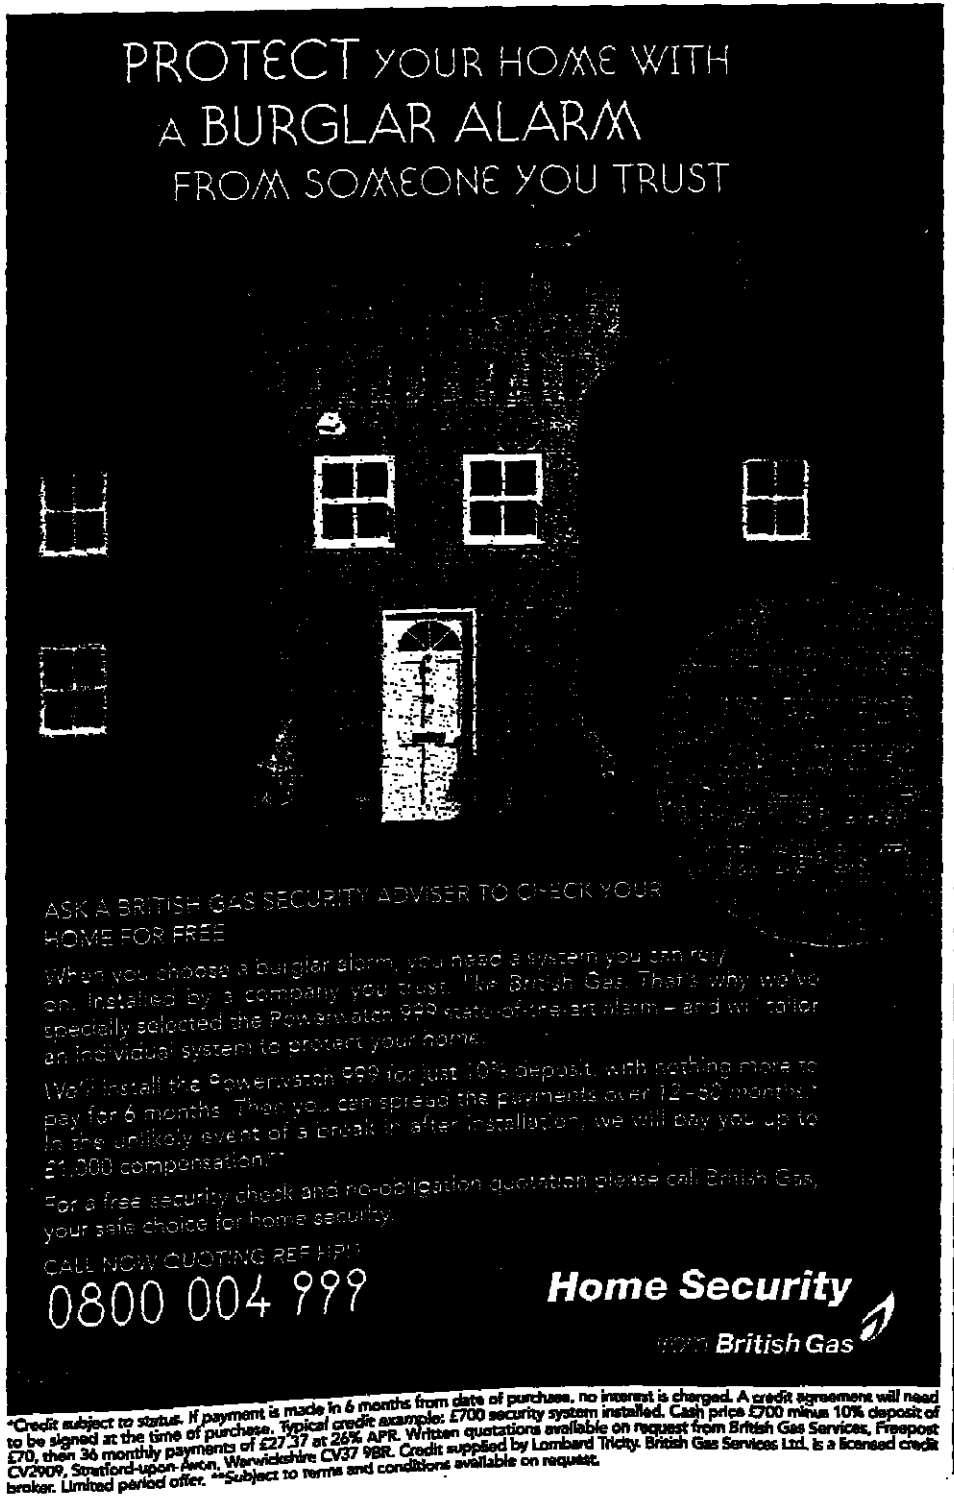 PROTECT YOUR HOME WITH
A BURGLAR ALARM
FROM SOMEONE YOU TRUST
ASK A BRITISH GAS SECURITY ADVISER TO CHECK YOUR
HOME FOR FREE
When you choose a burglar alarm, you need a system you can rely
on. Installed by a company you trust, like British Gas. That's why we've
specially selected the Powerwatch 999 state-of-the-art alarm – and will tailor
an individual system to protect your home.
We'll install the Powerwatch 999 for just 10% deposit, with nothing more to
pay for 6 months. Then you can spread the payments over 12–60 months.*
In the unlikely event of a break in after installation, we will pay you up to
£1,000 compensation.**
For a free security check and no-obligation quotation please call British Gas,
your safe choice for home security.
CALL NOW QUOTING REF
0800 004 999
Home Security
from British Gas
*Credit subject to status. If payment is made in 6 months from date of purchase, no interest is charged. A credit agreement will need
to be signed at the time of purchase. Typical credit example: £700 security system installed. Cash price £700 minus 10% deposit of
£70, then 36 monthly payments of £27.37 at 26% APR. Written quotations available on request from British Gas Services, Freepost
CV2909, Stratford-upon-Avon, Warwickshire CV37 9BR. Credit supplied by Lombard Tricity. British Gas Services Ltd. is a licensed credit
broker. Limited period offer. **Subject to terms and conditions available on request.